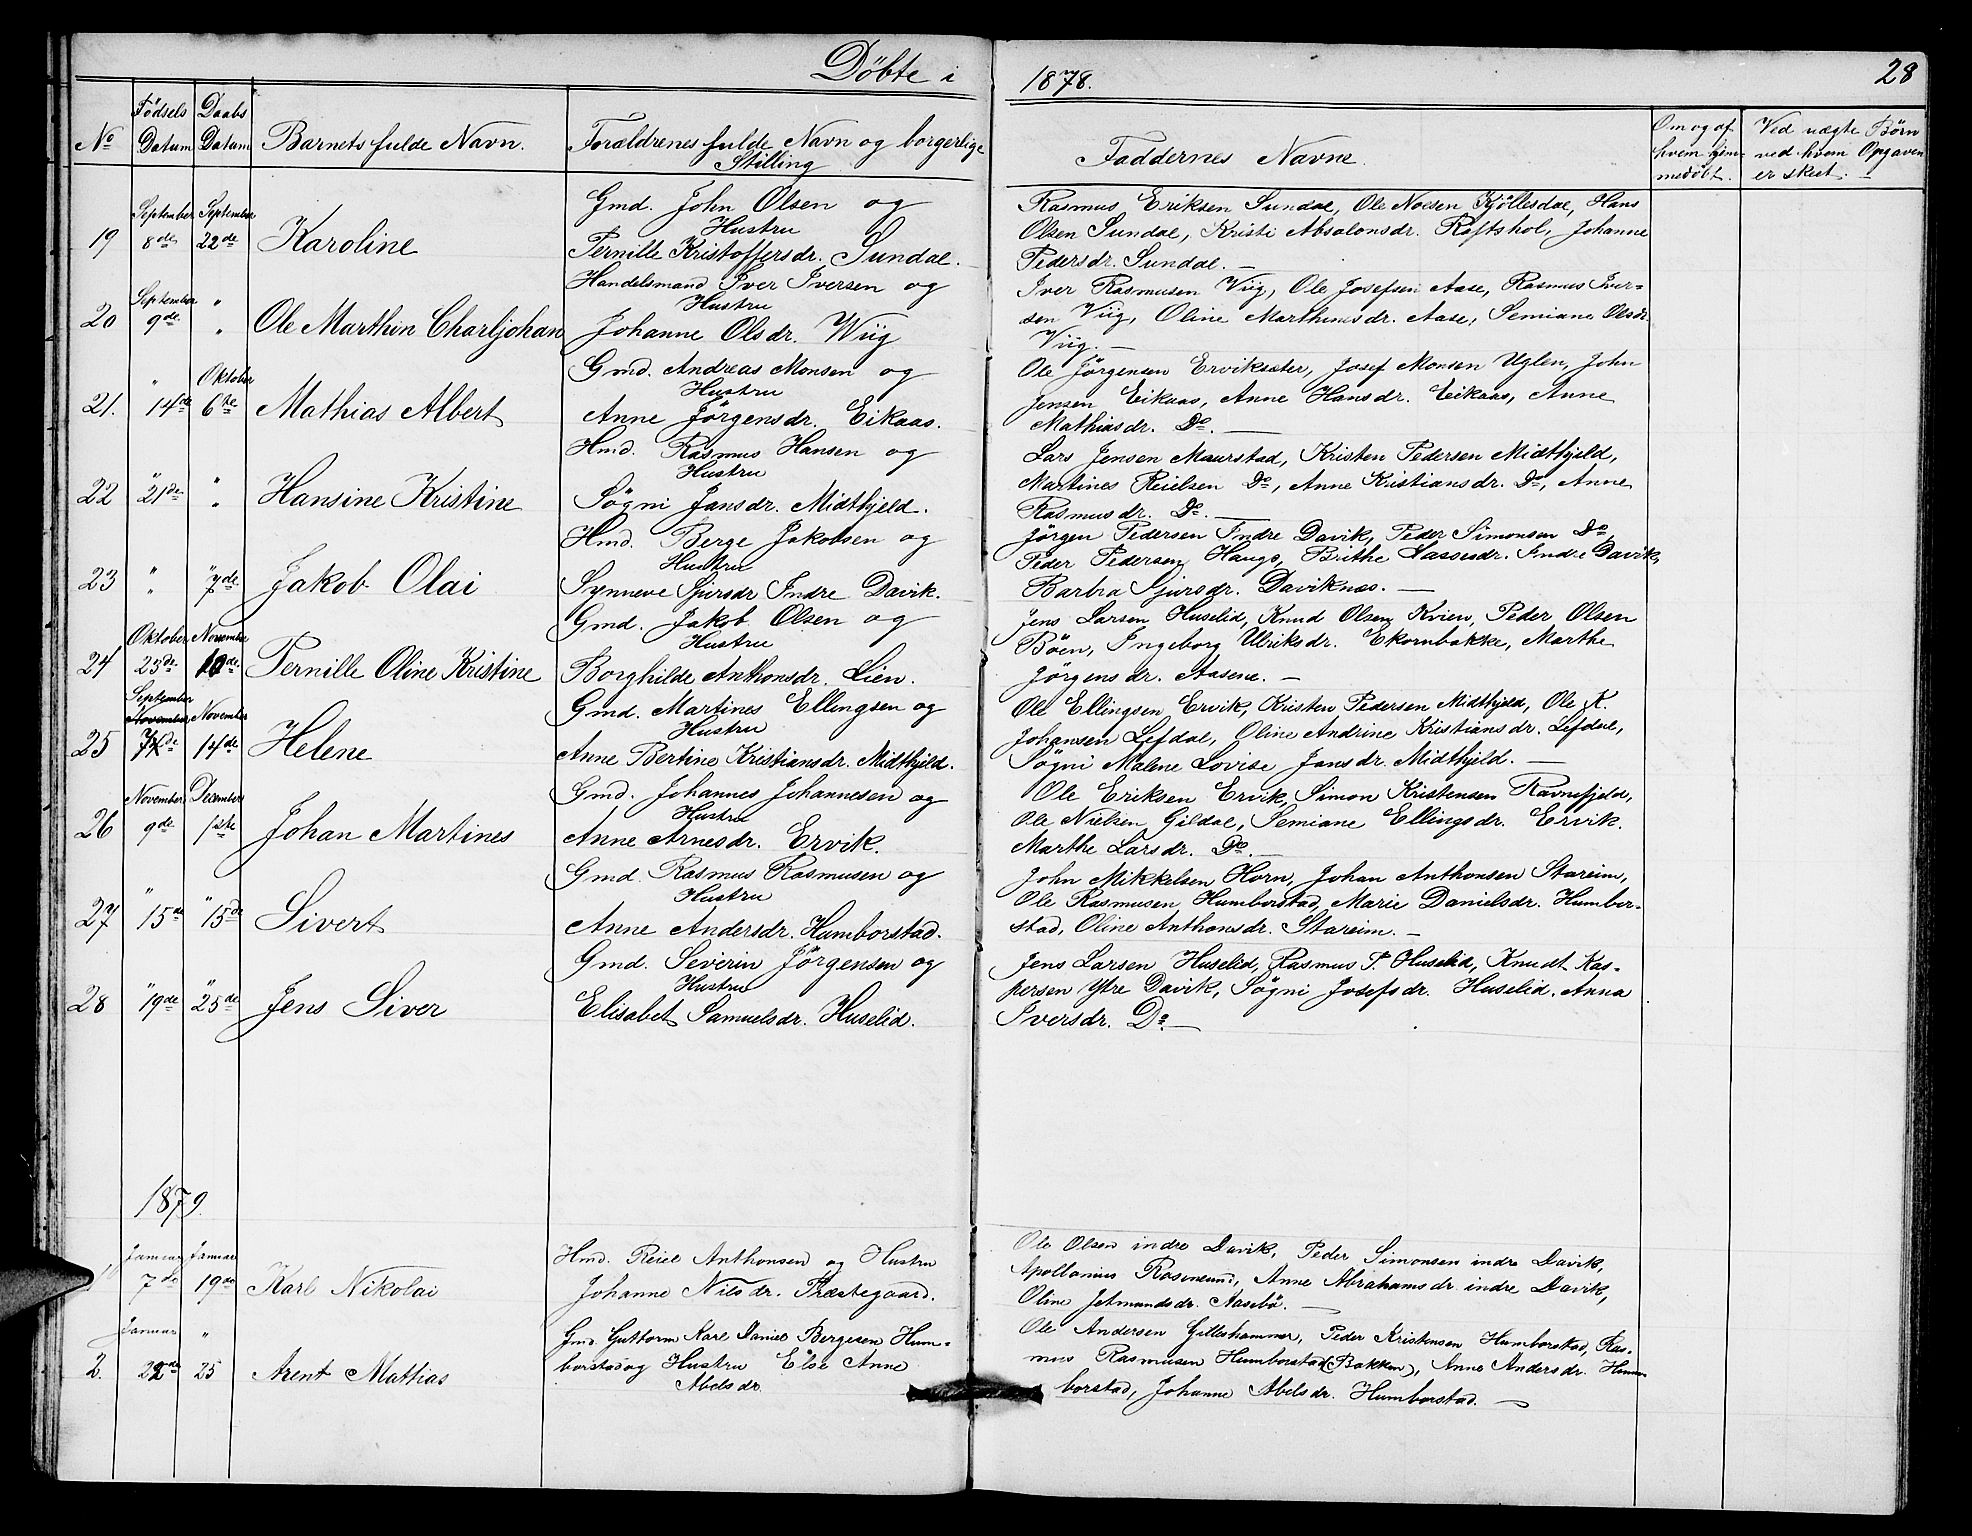 Döbte i 1878. 28
No Födsels Datum Daabs Datum Barnets fulde Navn. Forældrenes fulde Navn og borgerlige Stilling Faddernes Navne. Om og af hvem hjemmedöbt. Ved uægte Börn ved hvem Opgaven er skeet.
September September Gmd. John Olsen og Rasmus Eriksen Sundal, Ole Noesen Kjöllesdal, Hans
19 8de 22de Karoline Hustru Olsen Sundal, Kristi Absalonsdr. Roftshol, Johanne
Pernille Kristoffersdr. Sundal. Pedersdr. Sundal. —
September " Handelsmand Iver Iversen og Iver Rasmusen Viig, Ole Josefsen Aase, Rasmus Iver-
20 9de " Ole Marthin Charljohan Hustru sen Viig, Oline Marthinesdr. Aase, Semiane Olsdr.
Johanne Olsdr. Wiig Viig. —
" Oktober Gmd. Andreas Monsen og Ole Jörgensen Erviksæter, Josef Monsen Uglen, John
21. 14de 6te Mathias Albert Hustru Jensen Eikaas, Anne Hansdr. Eikaas, Anne
Anne Jörgensdr. Eikaas. Mathiasdr. Do. —
Hmd. Rasmus Hansen og Lars Jensen Maurstad, Kristen Pedersen Midthjeld,
22 "21de " " Hansine Kristine Hustru Martines Reielsen Do, Anne Kristiansdr. Do, Anne
Sögni Jansdr. Midthjeld. Rasmusdr. Do. —
Hmd. Berge Jakobsen og Jörgen Pedersen Indre Davik, Peder Simonsen Do,
23 " " "7de Jakob Olai Hustru Peder Pedersen Hauge, Brithe Lassesdr. Indre Davik,
Synneve Sjursdr Indre Davik. Barbra Sjursdr. Daviknes. —
Oktober November Gmd. Jakob Olsen og Jens Larsen Huselid, Knud Olsen Kvien, Peder Olsen
24 23de 10de Pernille Oline Kristine Hustru Böen, Ingeborg Ulriksdr. Ekornbakke, Marthe
Borghilde Anthonsdr. Lien. Jörgensdr. Aasene. —
September November November Gmd. Martines Ellingsen og Ole Ellingsen Ervik, Kristen Pedersen Midthjeld, Ole K.
25 14de Helene Hustru Johansen Lefdal, Oline Andrine Kristiansdr. Lefdal,
Anne Bertine Kristiansdr. Midthjeld. Sögni Malene Lovise Jansdr. Midthjeld. —
November December Gmd. Johannes Johannesen og Ole Eriksen Ervik, Simon Kristensen Ravnefjeld,
26 9de 1ste Johan Martines Hustru Ole Nielsen Gildal, Semiane Ellingsdr. Ervik.
Anne Arnesdr. Ervik. Marthe Larsdr. Do. —
Gmd. Rasmus Rasmusen og John Mikkelsen Horn, Johan Anthonsen Stareim,
27 "15de "15de Sivert Hustru Ole Rasmusen Humborstad, Marie Danielsdr. Humbor-
Anne Andersdr. Humborstad. stad, Oline Anthonsdr. Stareim. —
Gmd. Severin Jörgensen og Jens Larsen Huselid, Rasmus P. Huselid, Knudt Kas-
28 "19de "25de Jens Siver Hustru persen Ytre Davik, Sögni Josefsdr. Huselid. Anna
Elisabet Samuelsdr. Huselid. Iversdr. Do. —
1879.
Januar Januar Hmd. Reiel Anthonsen og Hustru Ole Olsen indre Davik, Peder Simonsen indre Davik,
1 7de 19de Karl Nikolai Johanne Nilsdr. Præstegaard. Apollonius Rosenlund, Anne Abrahamsdr. indre Davik,
Oline Jetmundsdr. Aasebö. —
Januar " Gmd. Guttorm Karl Daniel Bergesen Hum- Ole Andersen Gilleshammer, Peder Kristensen Humborstad, Ras-
2. 22de 25 Arent Mattias borstad og Hustru Else Anne mus Rasmusen Humborstad (Bakken), Anne Andersdr. Hum-
Abelsdr. borstad, Johanne Abelsdr. Humborstad. —